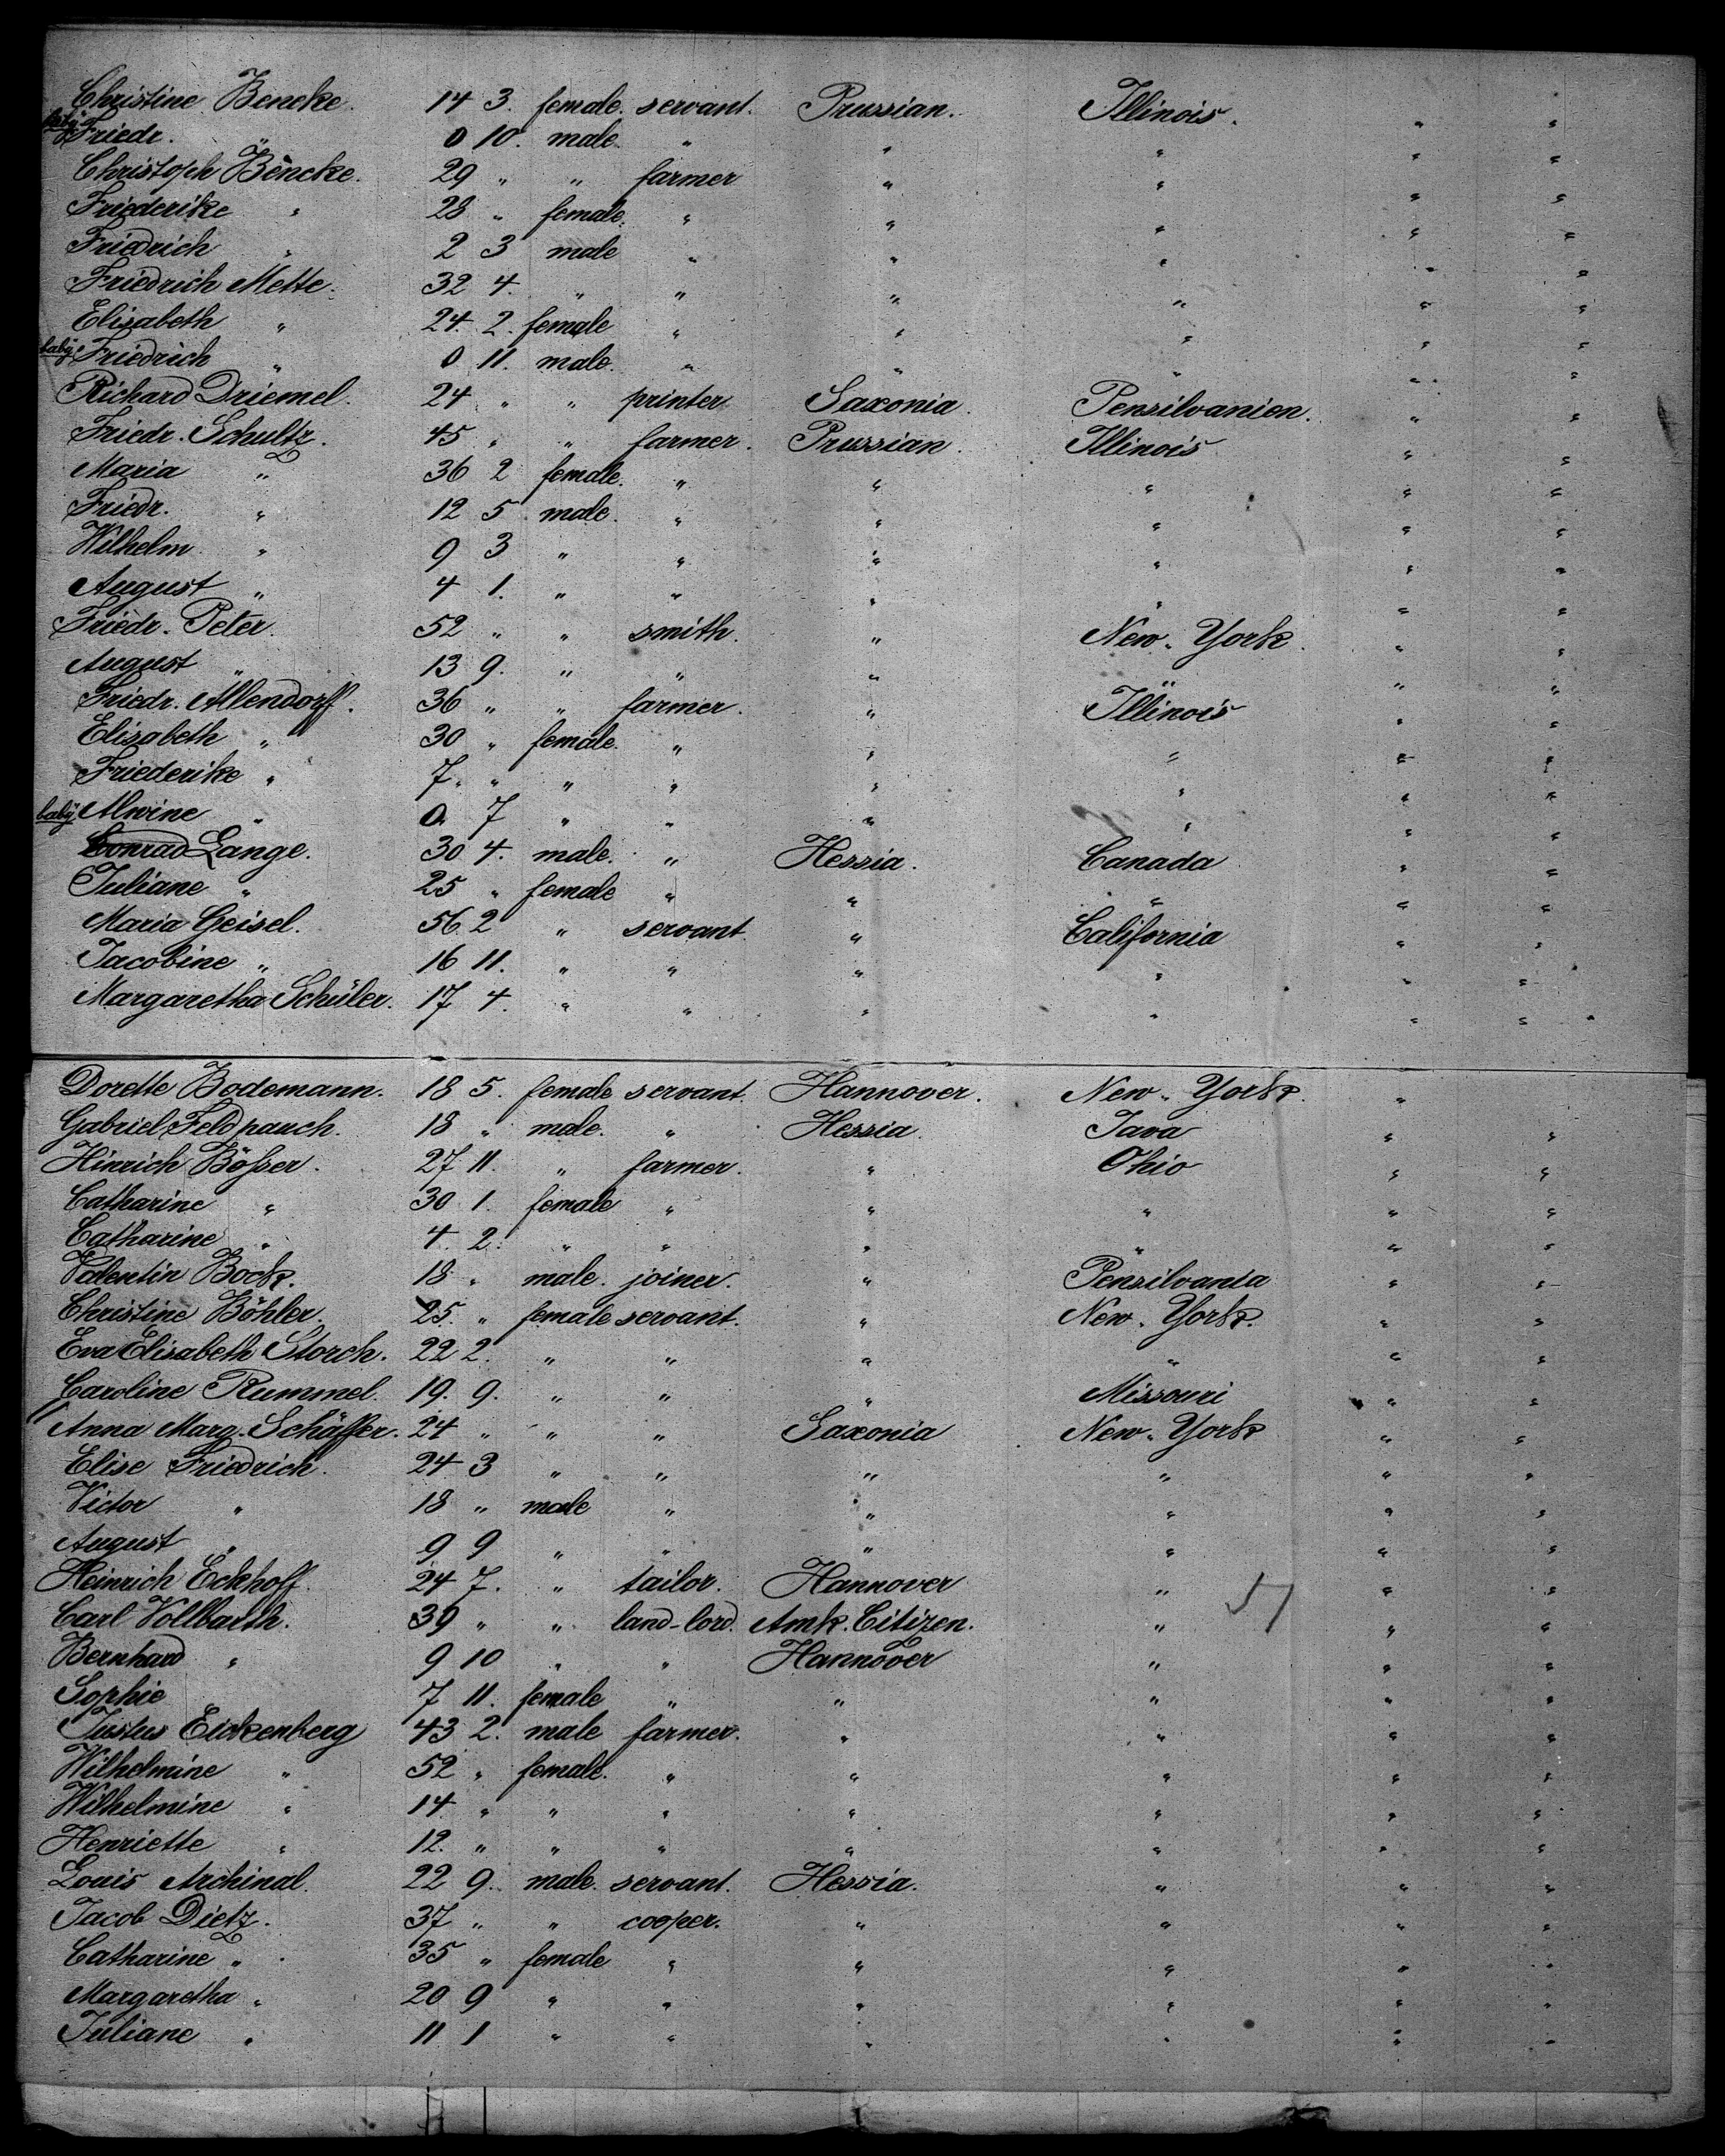 Christine Beneke. 14 3. female. servant. Prussian. Illinois. " "
baby Friedr. " 0 10. male. " " " " "
Christoph Bencke. 29 " " farmer " " " "
Friederike " 28 " female. " " " " "
Friedrich " 2 3 male " " " " "
Friedrich Mette. 32 4. " " " " " "
Elisabeth " 24. 2. female " " " " "
baby Friedrich " 0 11. male. " " " " "
Richard Driemel. 24 " " printer Saxonia. Pensilvanien. " "
Friedr. Schultz. 45 " " farmer. Prussian. Illinois " "
Maria " 36 2 female. " " " " "
Friedr. " 12 5 male. " " " " "
Wilhelm " 9 3 " " " " " "
August " 4 1. " " " " " "
Friedr. Peter. 52 " " smith. " New-York. " "
August " 13 9. " " " " " "
Friedr. Allendorff. 36 " " farmer. " Illinois " "
Elisabeth " 30 " female. " " " " "
Friederike " 7. " " " " " " "
baby Alwine " 0. 7 " " " " " "
Conrad Lange. 30 4. male. " Hessia. Canada " "
Juliane " 25 " female " " " " "
Maria Geisel. 56 2 " servant. " California " "
Jacobine " 16 11. " " " " " "
Margaretha Schüler. 17 4. " " " " " "
Dorette Bodemann. 18 5. female servant. Hannover. New-York. "
Gabriel Feldpauch. 18 " male. " Hessia. Java " "
Hinrich Bößer. 27 11. " farmer. " Ohio " "
Catharine " 30 1. female " " " " "
Catharine " 4. 2. " " " " " "
Valentin Bock. 18 " male. joiner. " Pensilvania " "
Christine Böhler. 25. " female servant. " New-York. " "
Eva Elisabeth Storch. 22 2. " " " " " "
Caroline Rummel. 19. 9. " " " Missouri " "
Anna Marg. Schäffer. 24 " " " Saxonia New-York " "
Elise Friedrich. 24 3 " " " " " "
Victor " 18 " male " " " " "
August " 9 9 " " " " " "
Heinrich Eckhoff. 24 7. " tailor. Hannover " " "
Carl Vollbarth. 39 " " land-lord. Amk. Citizen. " " "
Bernhard " 9 10 " " Hannover " " "
Sophie 7 11. female " " " " "
Justus Eickenberg 43 2. male farmer. " " " "
Wilhelmine " 52 " female. " " " " "
Wilhelmine " 14 " " " " " " "
Henriette " 12. " " " " " " "
Louis Archinal. 22 9. male. servant. Hessia. " " "
Jacob Dietz. 37 " " cooper. " " " "
Catharine " 35 " female " " " " "
Margaretha " 20 9 " " " " " "
Juliane " 11 1 " " " " " "